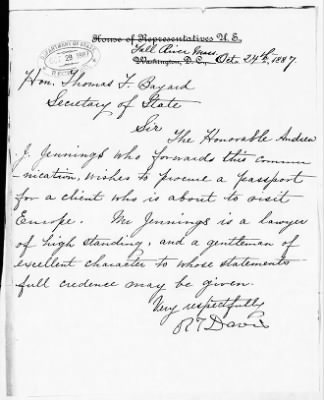 House of Representatives U. S.
DEPARTMENT OF STATE
Fall River Mass.
Washington, D. C., Oct. 24th, 1887.
Hon. Thomas F. Bayard
Secretary of State
Sir
The Honorable Andrew
J. Jennings who forwards this commu-
nication, wishes to procure a passport
for a client who is about to visit
Europe. Mr Jennings is a lawyer
of high standing, and a gentleman of
excellent character to whose statements
full credence may be given.
Very respectfully
R T Davis